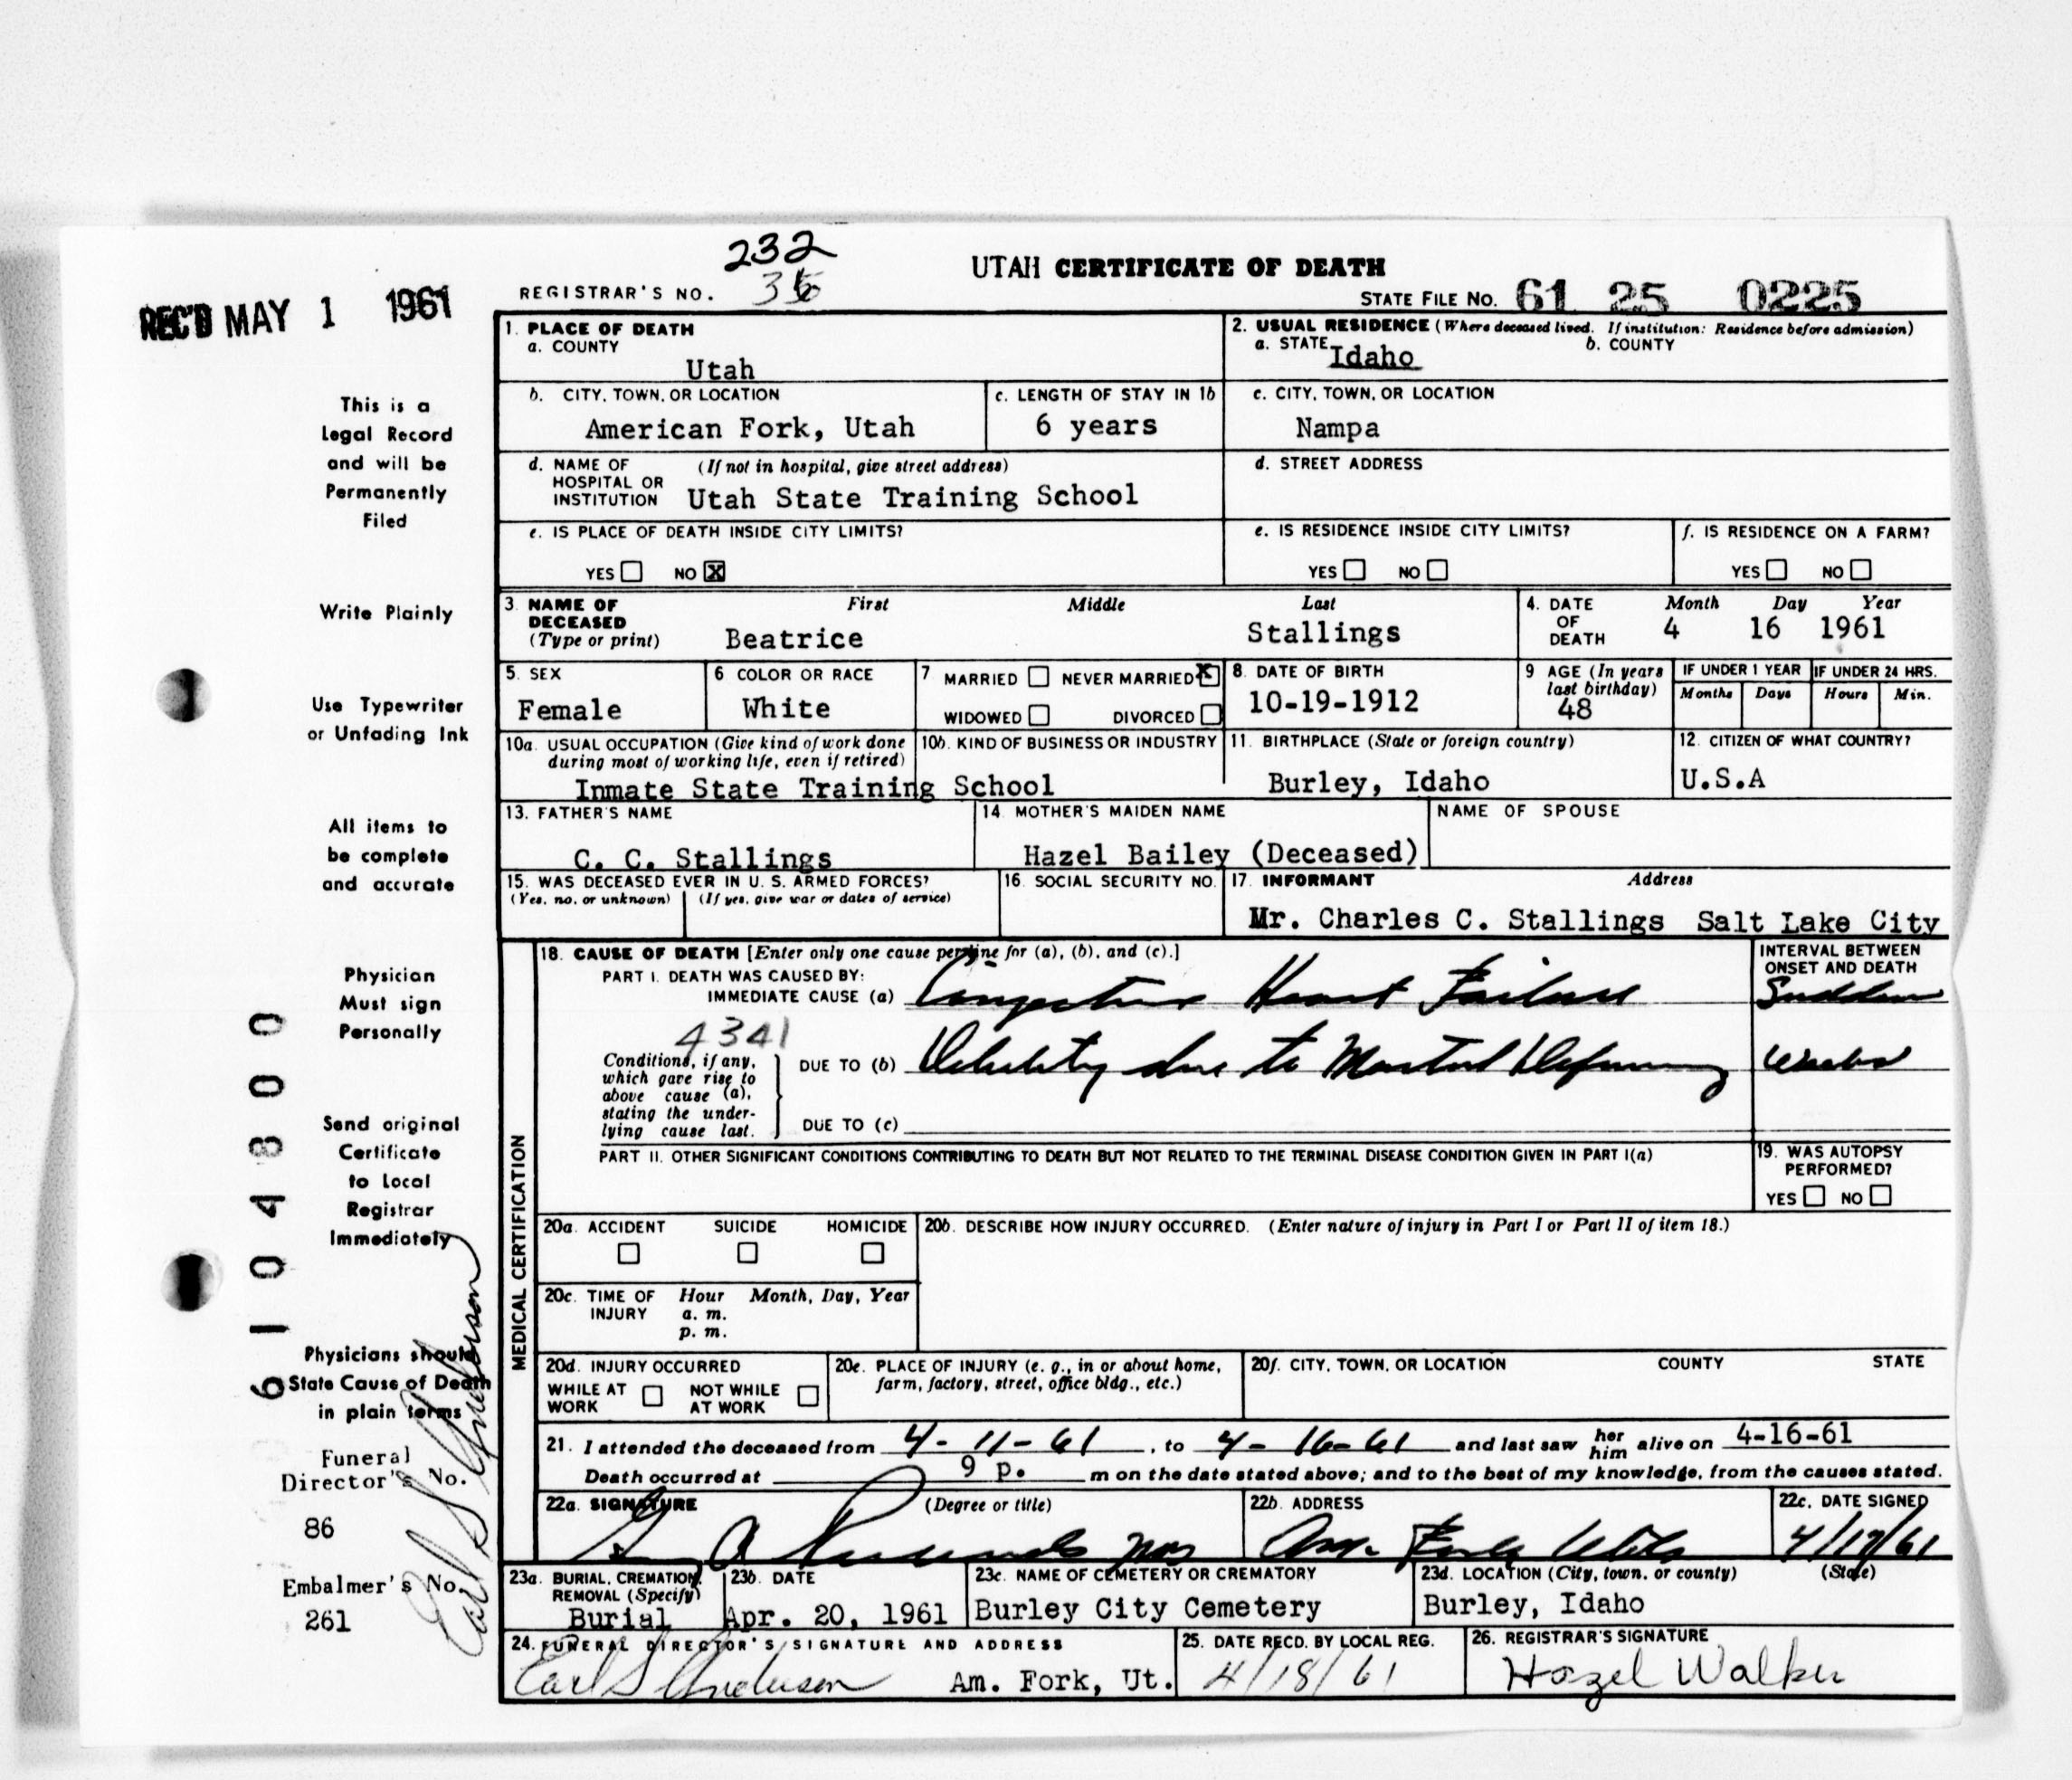 232
UTAH CERTIFICATE OF DEATH
REGISTRAR'S NO. 35
STATE FILE NO. 61 25 0225
REC'D MAY 1 1961
This is a
Legal Record
and will be
Permanently
Filed
Write Plainly
Use Typewriter
or Unfading Ink
All items to
be complete
and accurate
Physician
Must sign
Personally
Send original
Certificate
to Local
Registrar
Immediately
Physicians should
State Cause of Death
in plain terms
Funeral
Director's No.
86
Embalmer's No.
261
Earl S Anderson
6104800
1. PLACE OF DEATH
a. COUNTY
Utah
2. USUAL RESIDENCE (Where deceased lived. If institution: Residence before admission)
a. STATE Idaho b. COUNTY
b. CITY, TOWN, OR LOCATION
American Fork, Utah
c. LENGTH OF STAY IN 1b
6 years
c. CITY, TOWN, OR LOCATION
Nampa
d. NAME OF (If not in hospital, give street address)
HOSPITAL OR
INSTITUTION Utah State Training School
d. STREET ADDRESS
e. IS PLACE OF DEATH INSIDE CITY LIMITS?
YES NO X
e. IS RESIDENCE INSIDE CITY LIMITS?
YES NO
f. IS RESIDENCE ON A FARM?
YES NO
3. NAME OF First Middle Last
DECEASED
(Type or print) Beatrice Stallings
4. DATE Month Day Year
OF
DEATH 4 16 1961
5. SEX
Female
6 COLOR OR RACE
White
7 MARRIED NEVER MARRIED X
WIDOWED DIVORCED
8. DATE OF BIRTH
10-19-1912
9 AGE (In years
last birthday)
48
IF UNDER 1 YEAR
Months Days
IF UNDER 24 HRS.
Hours Min.
10a. USUAL OCCUPATION (Give kind of work done
during most of working life, even if retired)
10b. KIND OF BUSINESS OR INDUSTRY
Inmate State Training School
11. BIRTHPLACE (State or foreign country)
Burley, Idaho
12. CITIZEN OF WHAT COUNTRY?
U.S.A
13. FATHER'S NAME
C. C. Stallings
14. MOTHER'S MAIDEN NAME
Hazel Bailey (Deceased)
NAME OF SPOUSE
15. WAS DECEASED EVER IN U. S. ARMED FORCES?
(Yes, no, or unknown) (If yes, give war or dates of service)
16. SOCIAL SECURITY NO.
17. INFORMANT Address
Mr. Charles C. Stallings Salt Lake City
MEDICAL CERTIFICATION
18. CAUSE OF DEATH [Enter only one cause per line for (a), (b), and (c).]
PART I. DEATH WAS CAUSED BY:
IMMEDIATE CAUSE (a) Congestive Heart Failure
INTERVAL BETWEEN
ONSET AND DEATH
Sudden
4341
Conditions, if any,
which gave rise to
above cause (a),
stating the under-
lying cause last.
DUE TO (b) Debility due to Mental Deficiency
Weeks
DUE TO (c)
PART II. OTHER SIGNIFICANT CONDITIONS CONTRIBUTING TO DEATH BUT NOT RELATED TO THE TERMINAL DISEASE CONDITION GIVEN IN PART I(a)
19. WAS AUTOPSY
PERFORMED?
YES NO
20a. ACCIDENT SUICIDE HOMICIDE
20b. DESCRIBE HOW INJURY OCCURRED. (Enter nature of injury in Part I or Part II of item 18.)
20c. TIME OF Hour Month, Day, Year
INJURY a. m.
p. m.
20d. INJURY OCCURRED
WHILE AT NOT WHILE
WORK AT WORK
20e. PLACE OF INJURY (e. g., in or about home,
farm, factory, street, office bldg., etc.)
20f. CITY, TOWN, OR LOCATION COUNTY STATE
21. I attended the deceased from 4-11-61, to 4-16-61 and last saw her him alive on 4-16-61
Death occurred at 9 p. m on the date stated above; and to the best of my knowledge, from the causes stated.
22a. SIGNATURE (Degree or title)
22b. ADDRESS
Am. Fork Utah
22c. DATE SIGNED
4/17/61
23a. BURIAL, CREMATION,
REMOVAL (Specify)
Burial
23b. DATE
Apr. 20, 1961
23c. NAME OF CEMETERY OR CREMATORY
Burley City Cemetery
23d. LOCATION (City, town, or county) (State)
Burley, Idaho
24. FUNERAL DIRECTOR'S SIGNATURE AND ADDRESS
Earl S Anderson Am. Fork, Ut.
25. DATE RECD. BY LOCAL REG.
4/18/61
26. REGISTRAR'S SIGNATURE
Hazel Walker